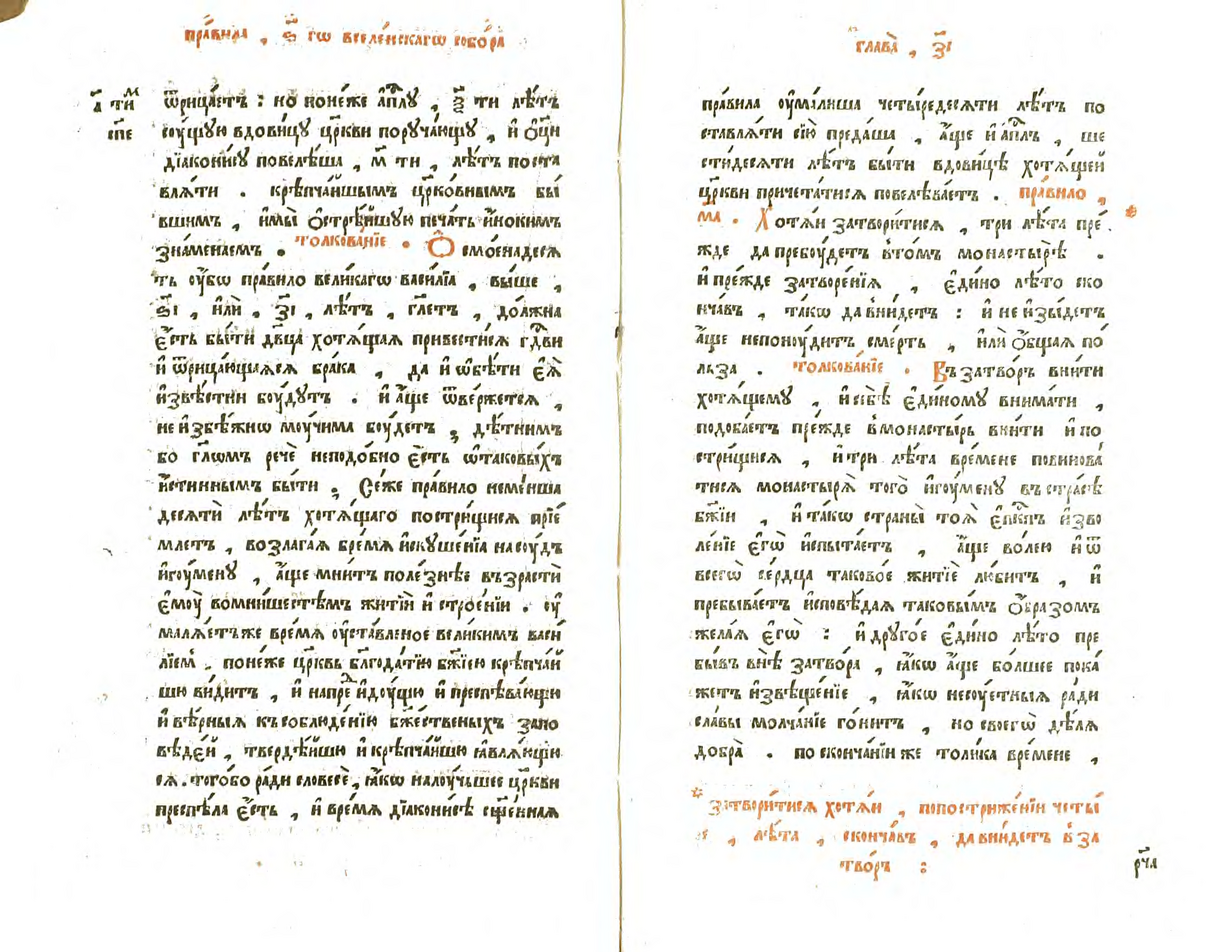 пра́вила , ѕ҃ гѡ вселе́нскагѡ собо́ра
а҃ ти м
спе
ѿрица́етъ : но поне́же а҆пⷭ҇лу , ѯ҃ ти лѣ́тъ
соу́щую вдови́цу цр҃кви поруча́ющу , и҆ ѻ҆ц҃и
дїакони́су повелѣ́ша , м҃ ти , лѣ́тъ поста
вля́ти . крѣпча́йшымъ цр҃ко́внымъ бы́
вшимъ , и҆мы̀ ѻ҆стрѣ́йшую печа́ть и҆́нокимъ
зна́менаемъ . толкова́нїе . Ѻ҆смоена́деся
ть ѹ҆́бѡ пра́вило вели́кагѡ васи́лїа , вы́ше ,
ѕ҃і , и҆лѝ , з҃і , лѣ́тъ , гл҃етъ , до́лжна
є҆́сть бы́ти дв҃ца хотѧ́щаѧ привести́сѧ гдⷭ҇ви
и҆ ѿрица́ющаѧсѧ бра́ка , да и҆ ѡ҆бѣ́ти є҆ѧ̀
и҆звѣ́стни бу́дутъ . и҆ а҆́ще ѿве́ржетсѧ ,
не и҆збѣ́жнѡ му́чима бу́детъ ; дѣ́тнимъ
бо гл҃ѡмъ речѐ неподо́бно є҆́сть ѡ҆таковы́хъ
и҆́стиннымъ бы́ти ; Се́же пра́вило неме́нша
десѧтѝ лѣ́тъ хотѧ́щаго пострищи́сѧ прїе́
млетъ , возлага́ѧ бре́мѧ и҆скуше́нїа на су́дъ
и҆гу́мену , а҆́ще мни́тъ поле́знѣе възрастѝ
є҆мꙋ̀ во мни́шестѣмъ житїѝ и҆ строе́нїи . ѹ҆
малѧ́етъ же вре́мѧ ѹ҆ста́вленое вели́кимъ васи́
лїемъ . поне́же цр҃квь бл҃года́тїю бж҃їею крѣпча́й
шю ви́дитъ , и҆ напре́ⷣ и҆ду́щю и҆ преспѣва́ющю
и҆ вѣ́рныѧ къ соблюде́нїю бж҃е́ственыхъ за́по
вѣде́й , тверде́йшю и҆ крѣпча́йшю ꙗ҆влѧ́ющю
сѧ . того́ бо ра́ди словесѐ , ꙗ҆́кѡ на лу́чьшее цр҃кви
преспѣ́ла є҆́сть , и҆ вре́мѧ дїакони́сѣ сщ҃е́ннаѧ
глава̀ , з҃і
пра́вила ѹ҆ма́лиша четы́редесѧти лѣ́тъ по
ставлѧ́ти сїю̀ преда́ша , а҆́ще и҆ а҆пⷭ҇лъ , ше
сти́десѧти лѣ́тъ бы́ти вдови́цѣ хотѧ́щей
цр҃кви причета́тисѧ повелѣва́етъ . пра́вило ,
м҃а . Хотѧ́й затвори́тисѧ , три лѣ́та пре́
жде да пребу́детъ в то́мъ монастырѣ̀ .
и҆ пре́жде затворе́нїѧ , є҆ди́но лѣ́то ско
нча́въ , та́кѡ да вни́детъ : и҆ не и҆зы́детъ
а҆́ще не пону́дитъ сме́рть , и҆лѝ ѻ҆́бщаѧ по́
льза . толкова́нїе . Въ затво́ръ вни́ти
хотѧ́щему , и҆ себѣ̀ є҆ди́ному внима́ти ,
подоба́етъ пре́жде в монасты́рь вни́ти и҆ по
стрищи́сѧ , и҆ три лѣ́та вре́мене повинова́
тисѧ монастырѧ̀ того̀ и҆гу́мену въ стра́сѣ
бж҃їи , и҆ та́кѡ страны̀ тоѧ̀ є҆пкⷭ҇пъ и҆зво
ле́нїе є҆гѡ̀ и҆спыта́етъ , а҆́ще во́лею и҆ ѿ
всегѡ̀ се́рдца таково́е житїѐ лю́битъ , и҆
пребыва́етъ и҆сповѣ́даѧ таковы́мъ ѻ҆́бразомъ
жела́ѧ є҆гѡ̀ : и҆ друго́е є҆ди́но лѣ́то пре
бы́въ внѣ̀ затво́ра , ꙗ҆́кѡ а҆́ще бо́лшее пока́
жетъ и҆звѣще́нїе , ꙗ҆́кѡ несу́етныѧ ра́ди
сла́вы молча́нїе го́нитъ , но своегѡ̀ дѣ́лѧ
добра̀ . по сконча́нїи же толи́ка вре́мене ,
* затвори́тисѧ хотѧ́й , по пострижє́нїи четы́
е , лѣ́та , сконча́въ , да вни́детъ в за
тво́ръ :
рч҃а